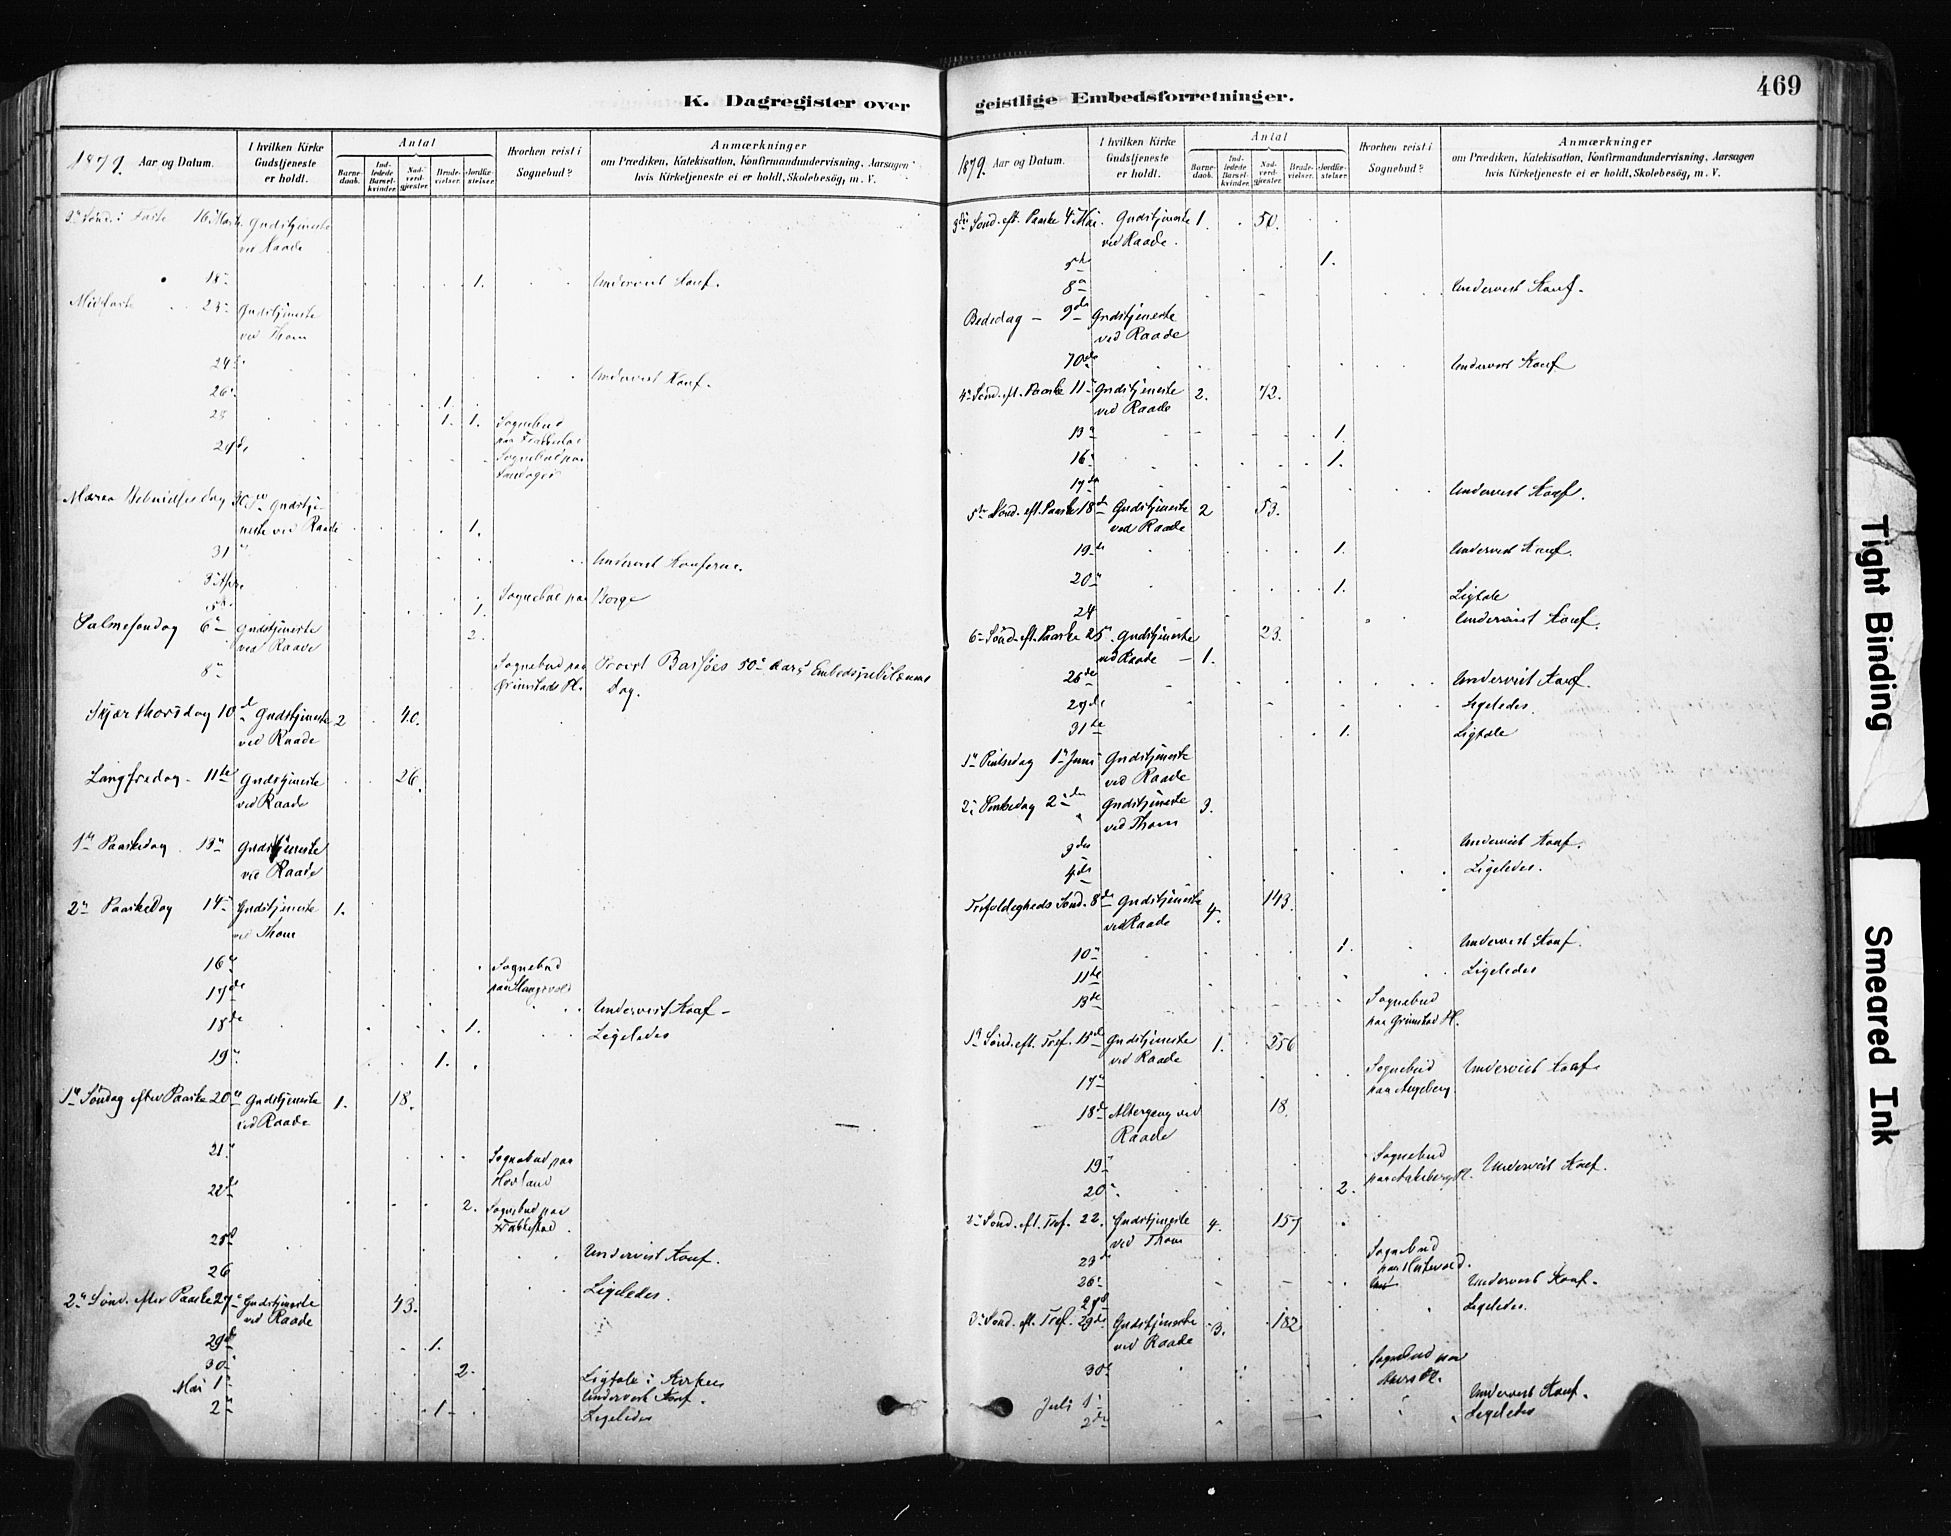 K. Dagregister over
1879. Aar og Datum.
I hvilken Kirke Gudstjeneste er holdt.
Antal
Barne-daab.
Ind-ledede Barsel-kvinder.
Nad-verd-gjæster
Brude-vielser.
Jordfæ-stelser.
Hvorhen reist i Sognebud?
Anmærkninger
om Prædiken, Katekisation, Konfirmandundervisning, Aarsagen
hvis Kirketjeneste ei er holdt, Skolebesøg, m. V.
Sønd. i Faste 16 Marts Gudstjeneste
ved Raade
18 1. Undervist Konf.
Midfaste 23 Gudstjeneste
ved Thom
24 Undervist Konf.
26 1.
1. 1. Sognebud
paa
Sognebud paa
Mariæ Bebudelses dag 30 Gudstje-
neste ved Raade 1.
31 Undervist Konferne.
3 Apr. Sognebud paa Borge
5 1.
Palmesøndag 6 Gudstjeneste 2.
ved Raade
8 Sognebud paa Provst Barføes 50 Aars Embedsjubilæums
Grimstads Pl. dag.
Skjærthorsdag 10 Gudstjeneste 2 40.
ved Raade
Langfredag 11te Gudstjeneste 26.
ved Raade
1ste Paaskedag 13 Gudstjeneste
ved Raade
2den Paaskedag 14 Gudstjeneste 1.
ved Thom
16 Sognebud
paa Haugsvold
17de Undervist Konf
18de 1. Ligeledes
19 1.
1ste Søndag efter Paaske 20 Gudstjeneste 1. 18.
ved Raade
21 Sognebud paa
Hovland
22de 2. Sognebud paa
25 Undervist Konf.
26 Ligeledes.
2den Sønd. efter Paaske 27 Gudstjeneste 43.
ved Raade
29de 1.
30 2.
Mai 1 Ligtale i Kirken
Undervist Konf.
2 1 Ligeledes
geistlige Embedsforretninger.
469
1879. Aar og Datum.
I hvilken Kirke Gudstjeneste er holdt.
Antal
Barne-daab.
Ind-ledede Barsel-kvinder.
Nad-verd-gjæster
Brude-vielser.
Jordfæ-stelser.
Hvorhen reist i Sognebud?
Anmærkninger
om Prædiken, Katekisation, Konfirmandundervisning, Aarsagen
hvis Kirketjeneste ei er holdt, Skolebesøg, m. V.
3die Sønd. eft. Paaske 4 Mai Gudstjeneste 1. 50.
ved Raade.
5te 1.
8 Undervist Konf.
Bededag 9de Gudstjeneste
ved Raade
10de Undervist Konf
4 Sønd. eft. Paaske 11 Gudstjeneste 2. 72.
ved Raade
13 1.
16 1.
17de Undervist Konf.
5te Sønd. eft. Paaske 18 Gudstjeneste 2 53.
ved Raade
19de 1. Undervist Konf.
20 1. Ligtale
24 Undervist Konf.
6 Sønd. eft. Paaske 25 Gudstjeneste 23.
ved Raade 1.
26de Undervist Konf.
29de Ligeledes.
31te 1. Ligtale
1ste Pintsedag 1ste Juni Gudstjeneste
ved Raade
2 Pintsedag 2den Gudstjeneste 3.
ved Thom
3die Undervist Konf.
4de Ligeledes.
Trefoldigheds Sønd. 8de Gudstjeneste 4. 143.
ved Raade
10 1. Undervist Konf.
11te Ligeledes
13de Sognebud
paa Grimstad Pl.
1ste Sønd. eft. Tref. 15de Gudstjeneste 1. 256
ved Raade
17 Sognebud Undervist Konf.
18de Altergang ved 18.
Raade
19 Sognebud Undervist Konf.
20 2.
2 Sønd. eft. Tref. 22. Gudstjeneste 4. 157
ved Thom
23 Sognebud
26 Undervist Konf.
28 Ligeledes.
3 Sønd. eft. Tref. 29de Gudstjeneste 3. 182
ved Raade
30 Sognebud paa
Juli 1 Undervist Konf.
2den Ligeledes
Tight Binding
Smeared Ink